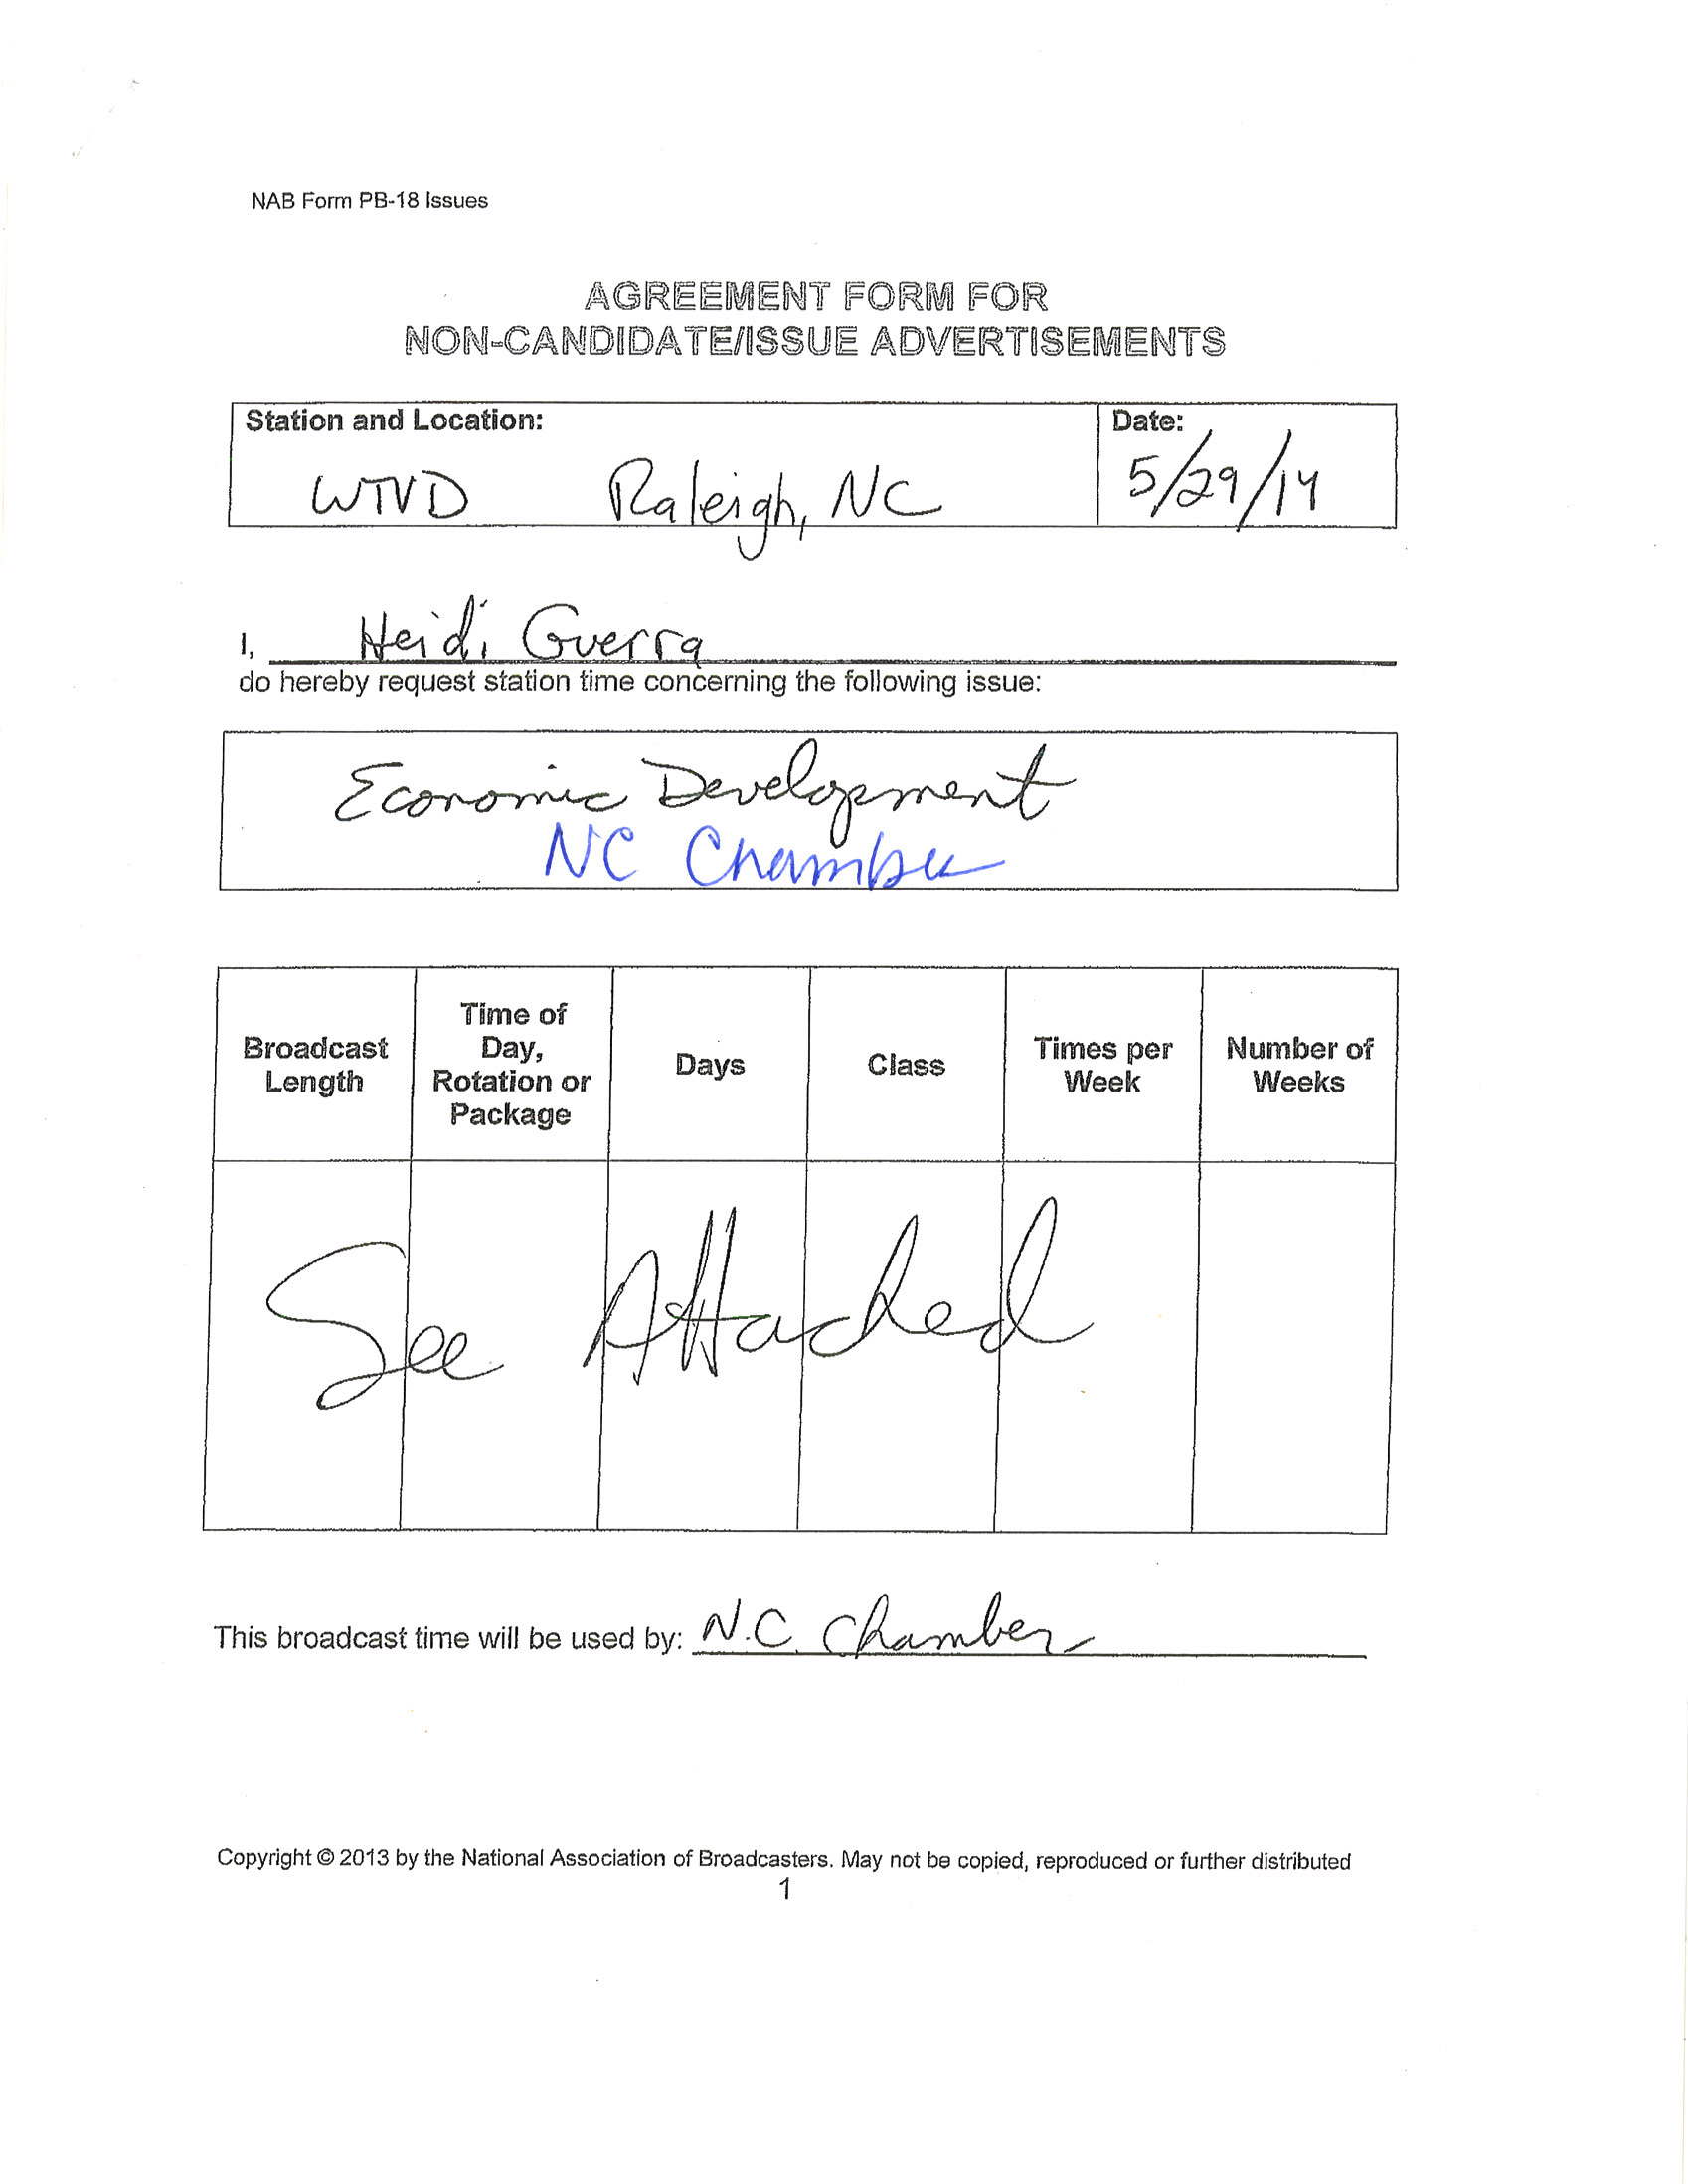 NAB Form PB-18 Issues
AGREEMENT FORM FOR
NON-CANDIDATE/ISSUE ADVERTISEMENTS
Station and Location:
Date:
WTVD Raleigh, NC
5/29/14
I, Heidi Guerra
do hereby request station time concerning the following issue:
Economic Development
NC Chamber
Broadcast Length
Time of Day, Rotation or Package
Days
Class
Times per Week
Number of Weeks
See Attached
This broadcast time will be used by: N.C. Chamber
Copyright © 2013 by the National Association of Broadcasters. May not be copied, reproduced or further distributed
1